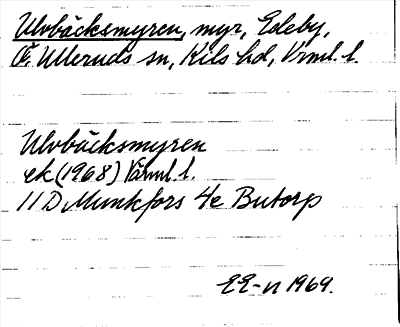 Ulvbäcksmyren, myr, Edeby,
Ö. Ulleruds sn, Kils hd, Vrml. l.
Ulvbäcksmyren
ek (1968) Värml. l.
11 D Munkfors 4e Butorp
EE-n 1969.